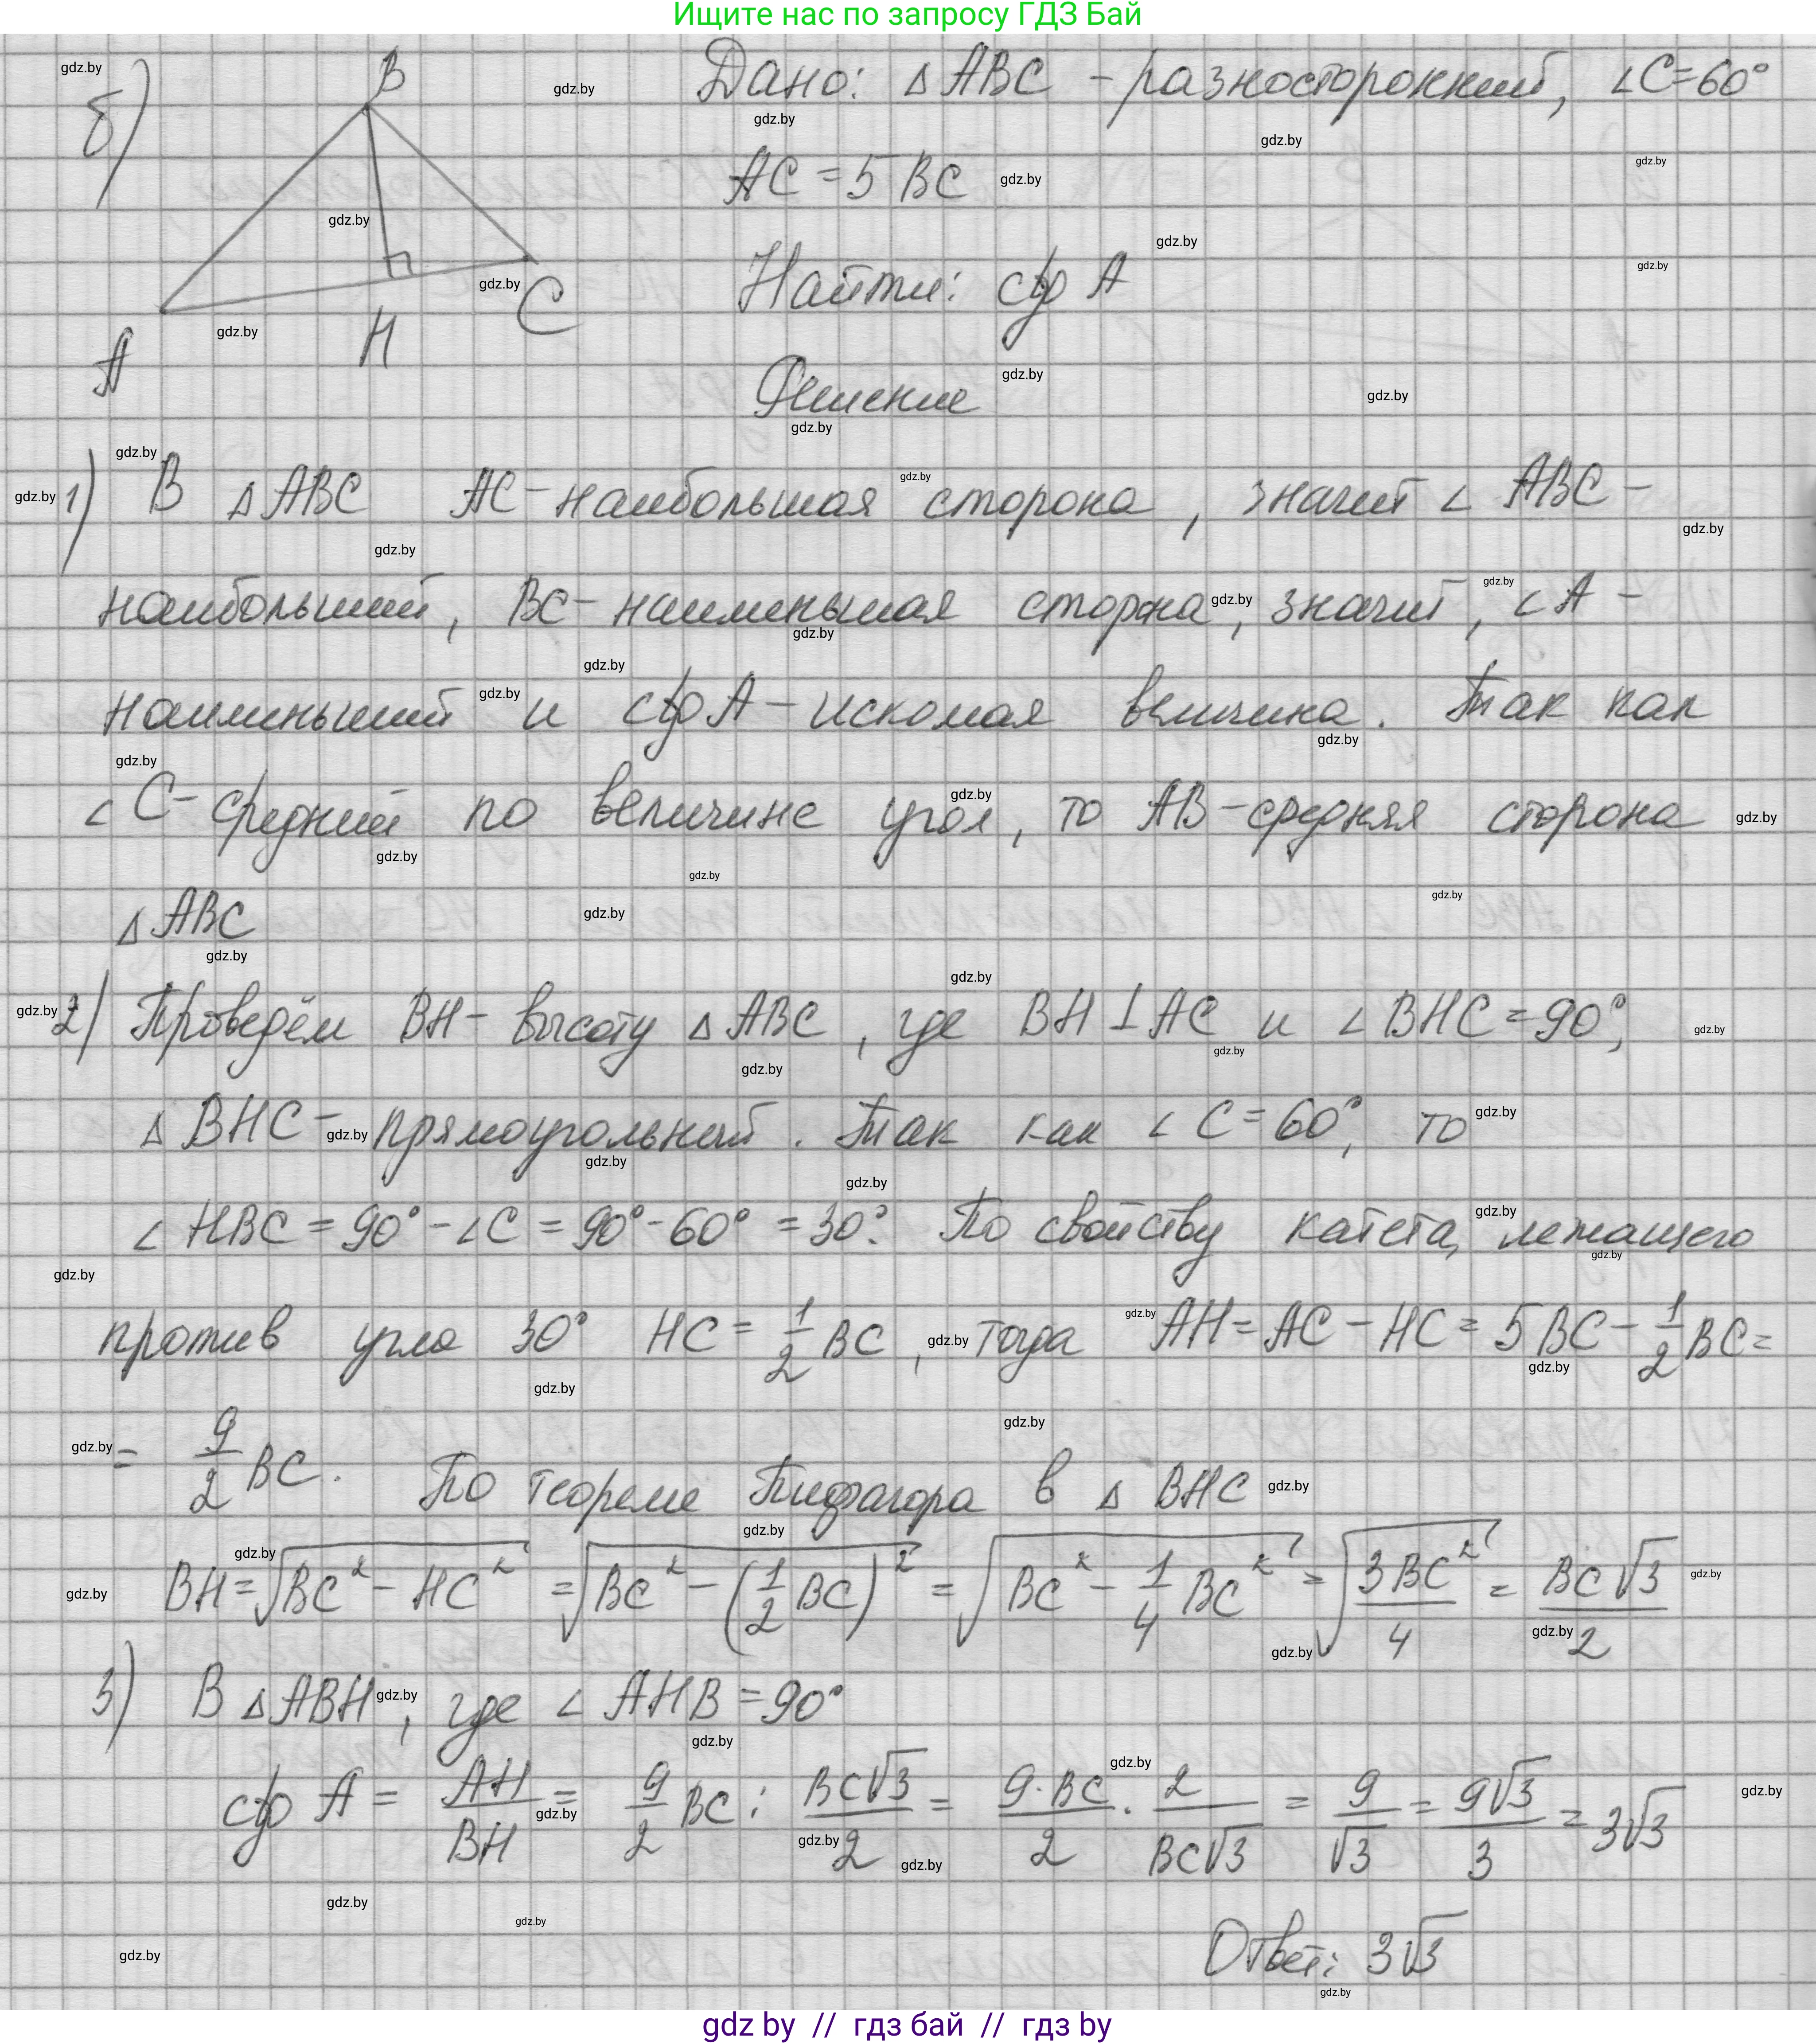 Ищите нас по запросу ГДЗ Бай
б) Дано: △ ABC - разносторонний, ∠C=60°
AC = 5 BC
Найти: ctg A
B
A
H
C
Решение
1) В △ ABC AC - наибольшая сторона, значит ∠ ABC -
наибольший, BC - наименьшая сторона, значит, ∠A -
наименьший и ctg A - искомая величина. Так как
∠C - средний по величине угол, то AB - средняя сторона
△ ABC
2) Проведём BH - высоту △ ABC, где BH ⊥ AC и ∠ BHC = 90°,
△ BHC - прямоугольный. Так как ∠ C = 60°, то
∠ HBC = 90° - ∠C = 90° - 60° = 30°. По свойству катета, лежащего
против угла 30° HC = 1/2 BC, тогда AH = AC - HC = 5 BC - 1/2 BC =
= 9/2 BC. По теореме Пифагора в △ BHC
BH = √(BC² - HC²) = √(BC² - (1/2 BC)²) = √(BC² - 1/4 BC²) = √(3BC²/4) = BC√3/2
3) В △ ABH, где ∠ AHB = 90°
ctg A = AH/BH = 9/2 BC : BC√3/2 = 9·BC/2 · 2/BC√3 = 9/√3 = 9√3/3 = 3√3
Ответ: 3√3
gdz by // гдз бай // гдз by